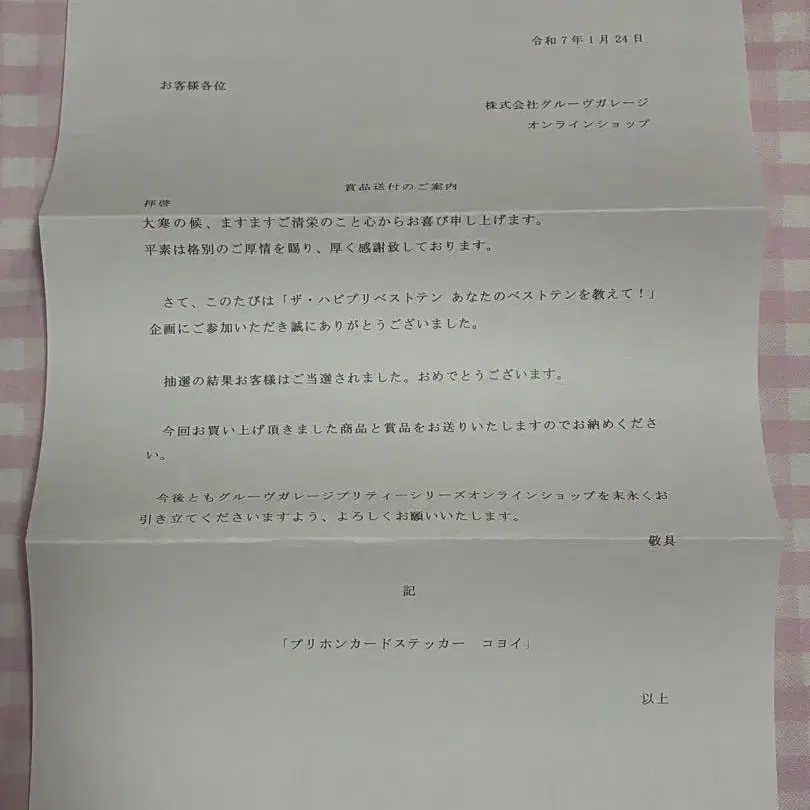 令和7年1月24日
お客様各位
株式会社グルーヴガレージ
オンラインショップ
賞品送付のご案内
拝啓
大寒の候、ますますご清栄のこと心からお喜び申し上げます。
平素は格別のご厚情を賜り、厚く感謝致しております。
さて、このたびは「ザ・ハピプリベストテン あなたのベストテンを教えて！」
企画にご参加いただき誠にありがとうございました。
抽選の結果お客様はご当選されました。おめでとうございます。
今回お買い上げ頂きました商品と賞品をお送りいたしますのでお納めくださ
い。
今後ともグルーヴガレージプリティーシリーズオンラインショップを末永くお
引き立てくださいますよう、よろしくお願いいたします。
敬具
記
「プリホンカードステッカー　コヨイ」
以上